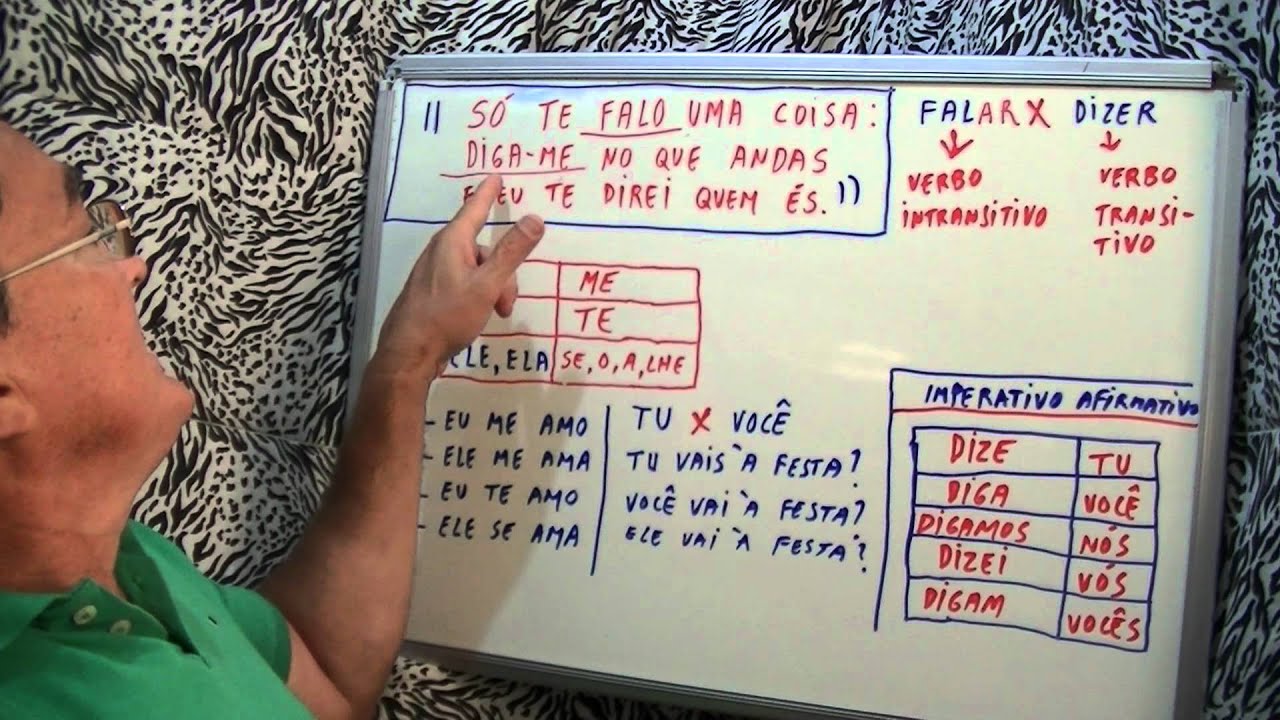 " SÓ TE FALO UMA COISA:
DIGA-ME NO QUE ANDAS
E EU TE DIREI QUEM ÉS. "
FALAR X DIZER
VERBO INTRANSITIVO
VERBO TRANSI-
TIVO
ME
TE
ELE, ELA SE, O, A, LHE
- EU ME AMO
- ELE ME AMA
- EU TE AMO
- ELE SE AMA
TU X VOCÊ
TU VAIS À FESTA?
VOCÊ VAI À FESTA?
ELE VAI À FESTA?
IMPERATIVO AFIRMATIVO
DIZE TU
DIGA VOCÊ
DIGAMOS NÓS
DIZEI VÓS
DIGAM VOCÊS